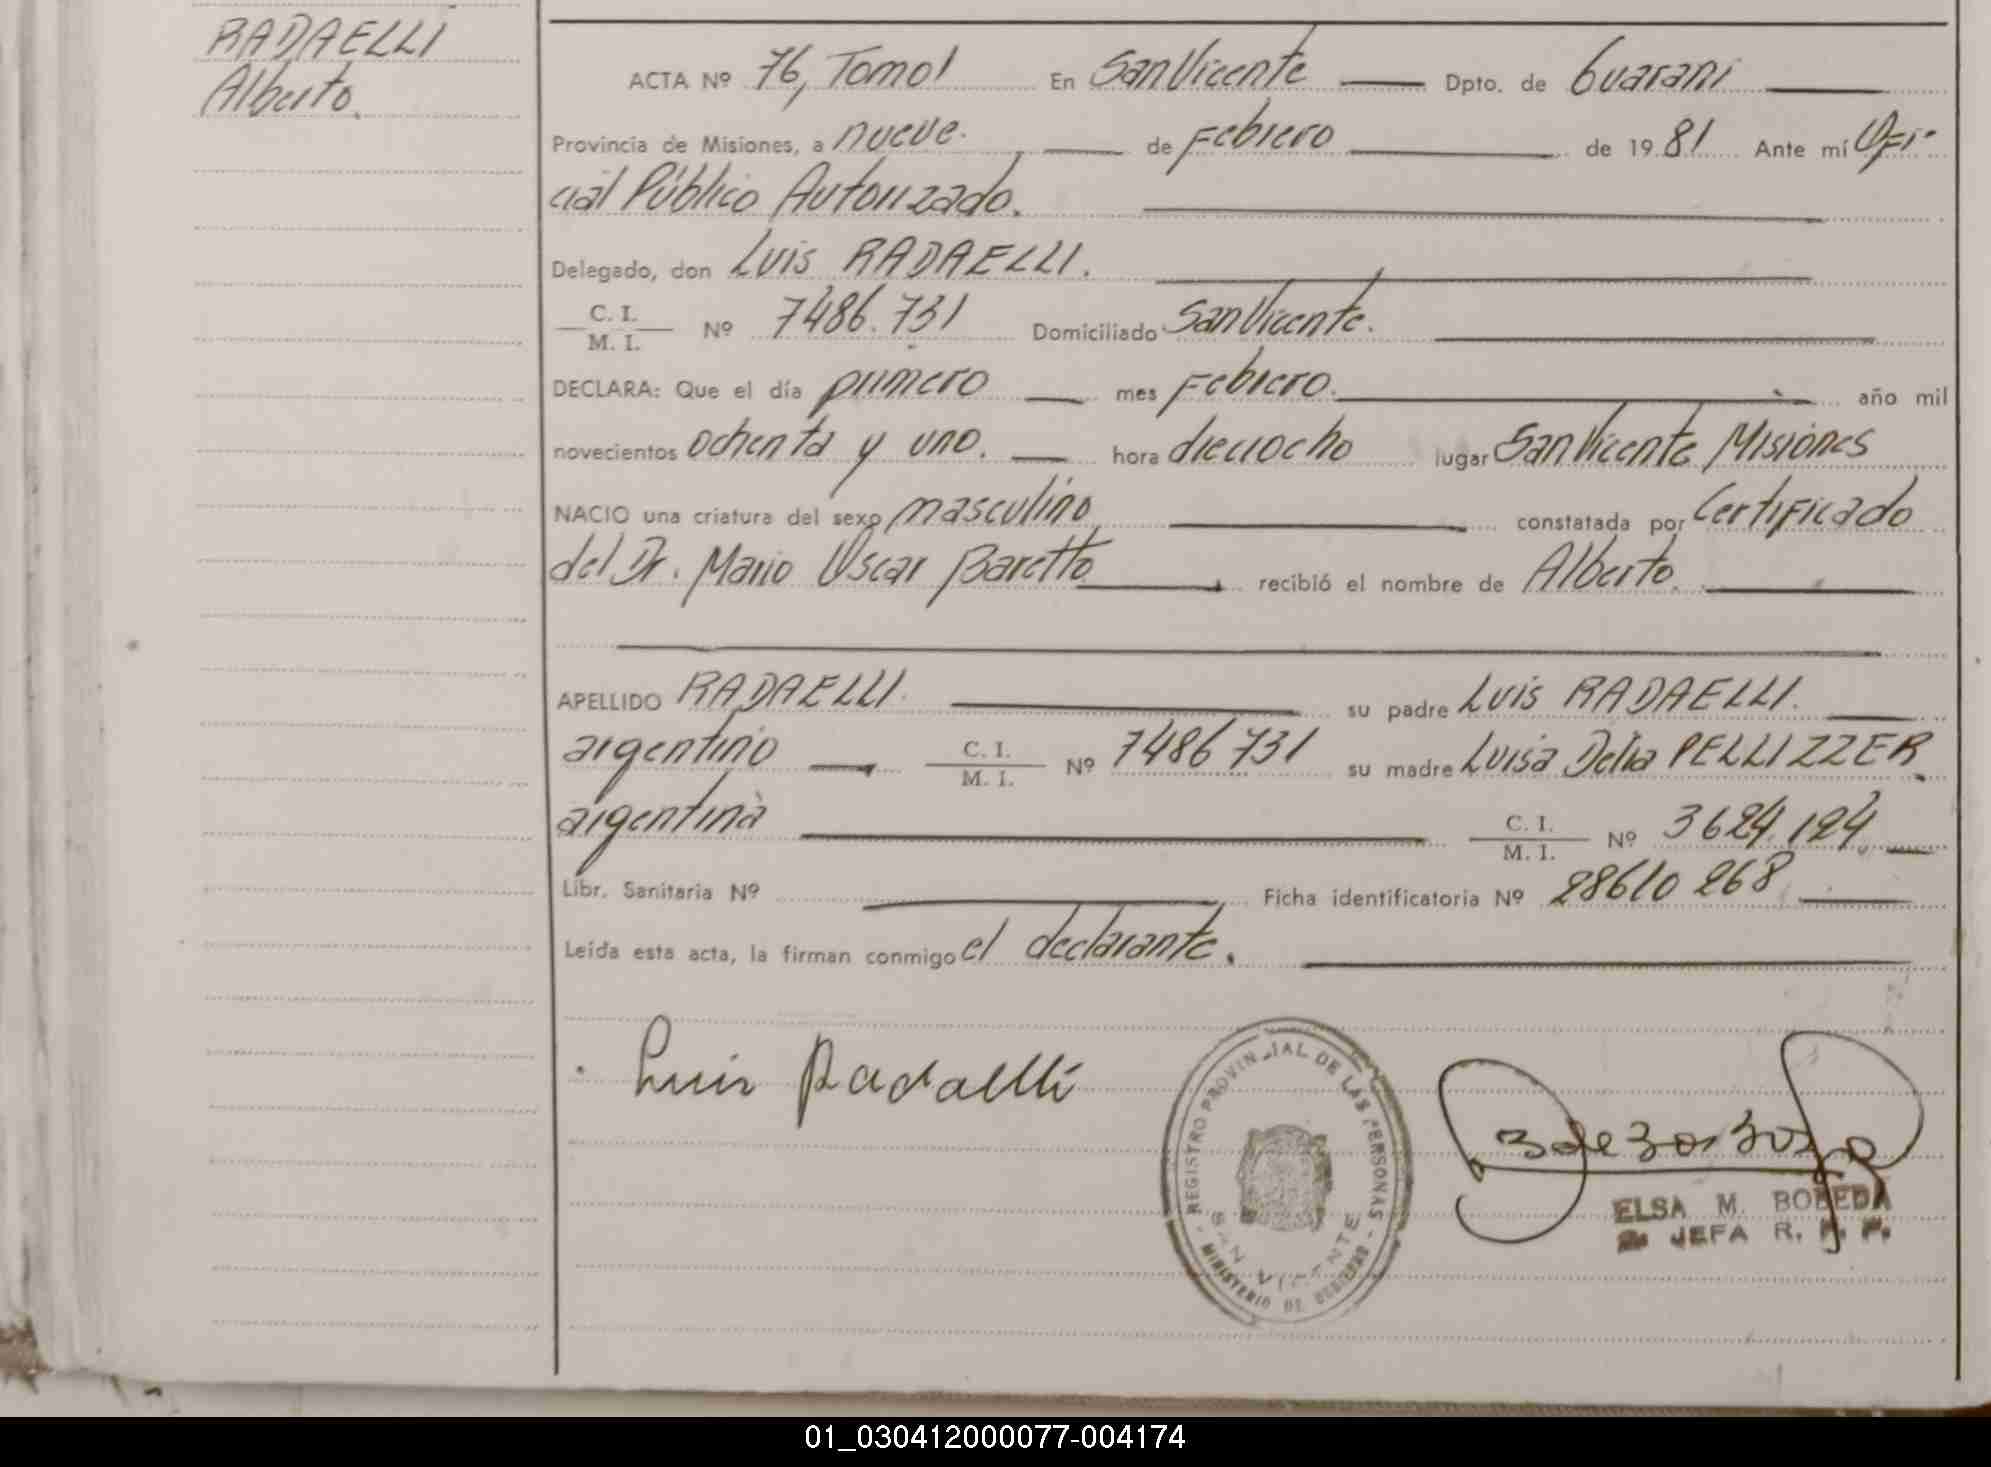 RADAELLI
Alberto.
ACTA Nº 76, Tomo I En San Vicente Dpto. de Guaraní
Provincia de Misiones, a nueve. de Febrero de 1981 Ante mí Ofi-
cial Público Autorizado.
Delegado, don Luis RADAELLI.
C. I.
M. I. Nº 7486.731 Domiciliado San Vicente.
DECLARA: Que el día primero mes Febrero. año mil
novecientos ochenta y uno. hora dieciocho lugar San Vicente Misiones
NACIO una criatura del sexo masculino constatada por Certificado
del Dr. Mario Oscar Baretto recibió el nombre de Alberto
APELLIDO RADAELLI. su padre Luis RADAELLI.
argentino C. I. M. I. Nº 7486731 su madre Luisa Delia PELLIZZER
argentina C. I. M. I. Nº 3624.124
Libr. Sanitaria Nº Ficha identificatoria Nº 28610268
Leída esta acta, la firman conmigo el declarante.
Luis Radaelli
REGISTRO PROVINCIAL DE LAS PERSONAS
SAN VICENTE
MINISTERIO DE GOBIERNO
ELSA M. BOBEDA
JEFA R. P. P.
01_030412000077-004174